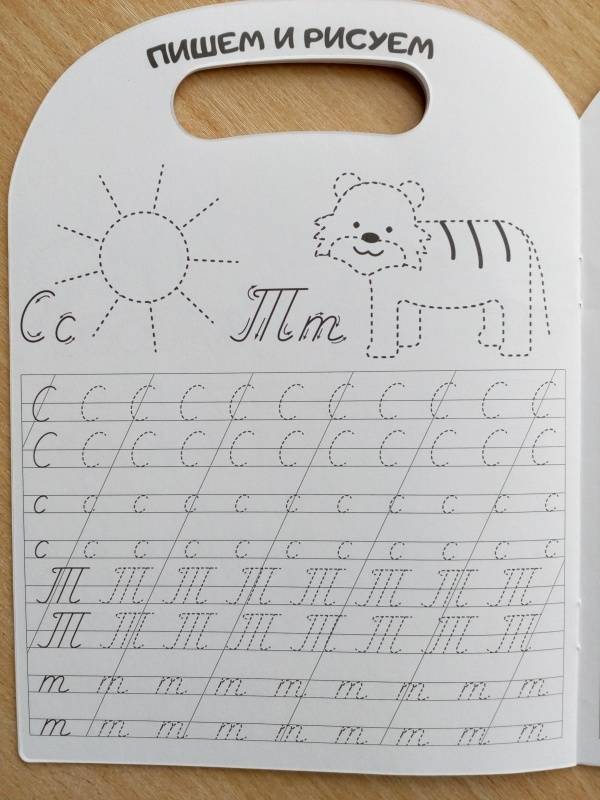 ПИШЕМ И РИСУЕМ
Сс Тт
С С С С С С С С С С С
С С С С С С С С С С С
с с с с с с с с с с с
с с с с с с с с с с с
Т Т Т Т Т Т Т Т
Т Т Т Т Т Т Т Т
т т т т т т т т т
т т т т т т т т т